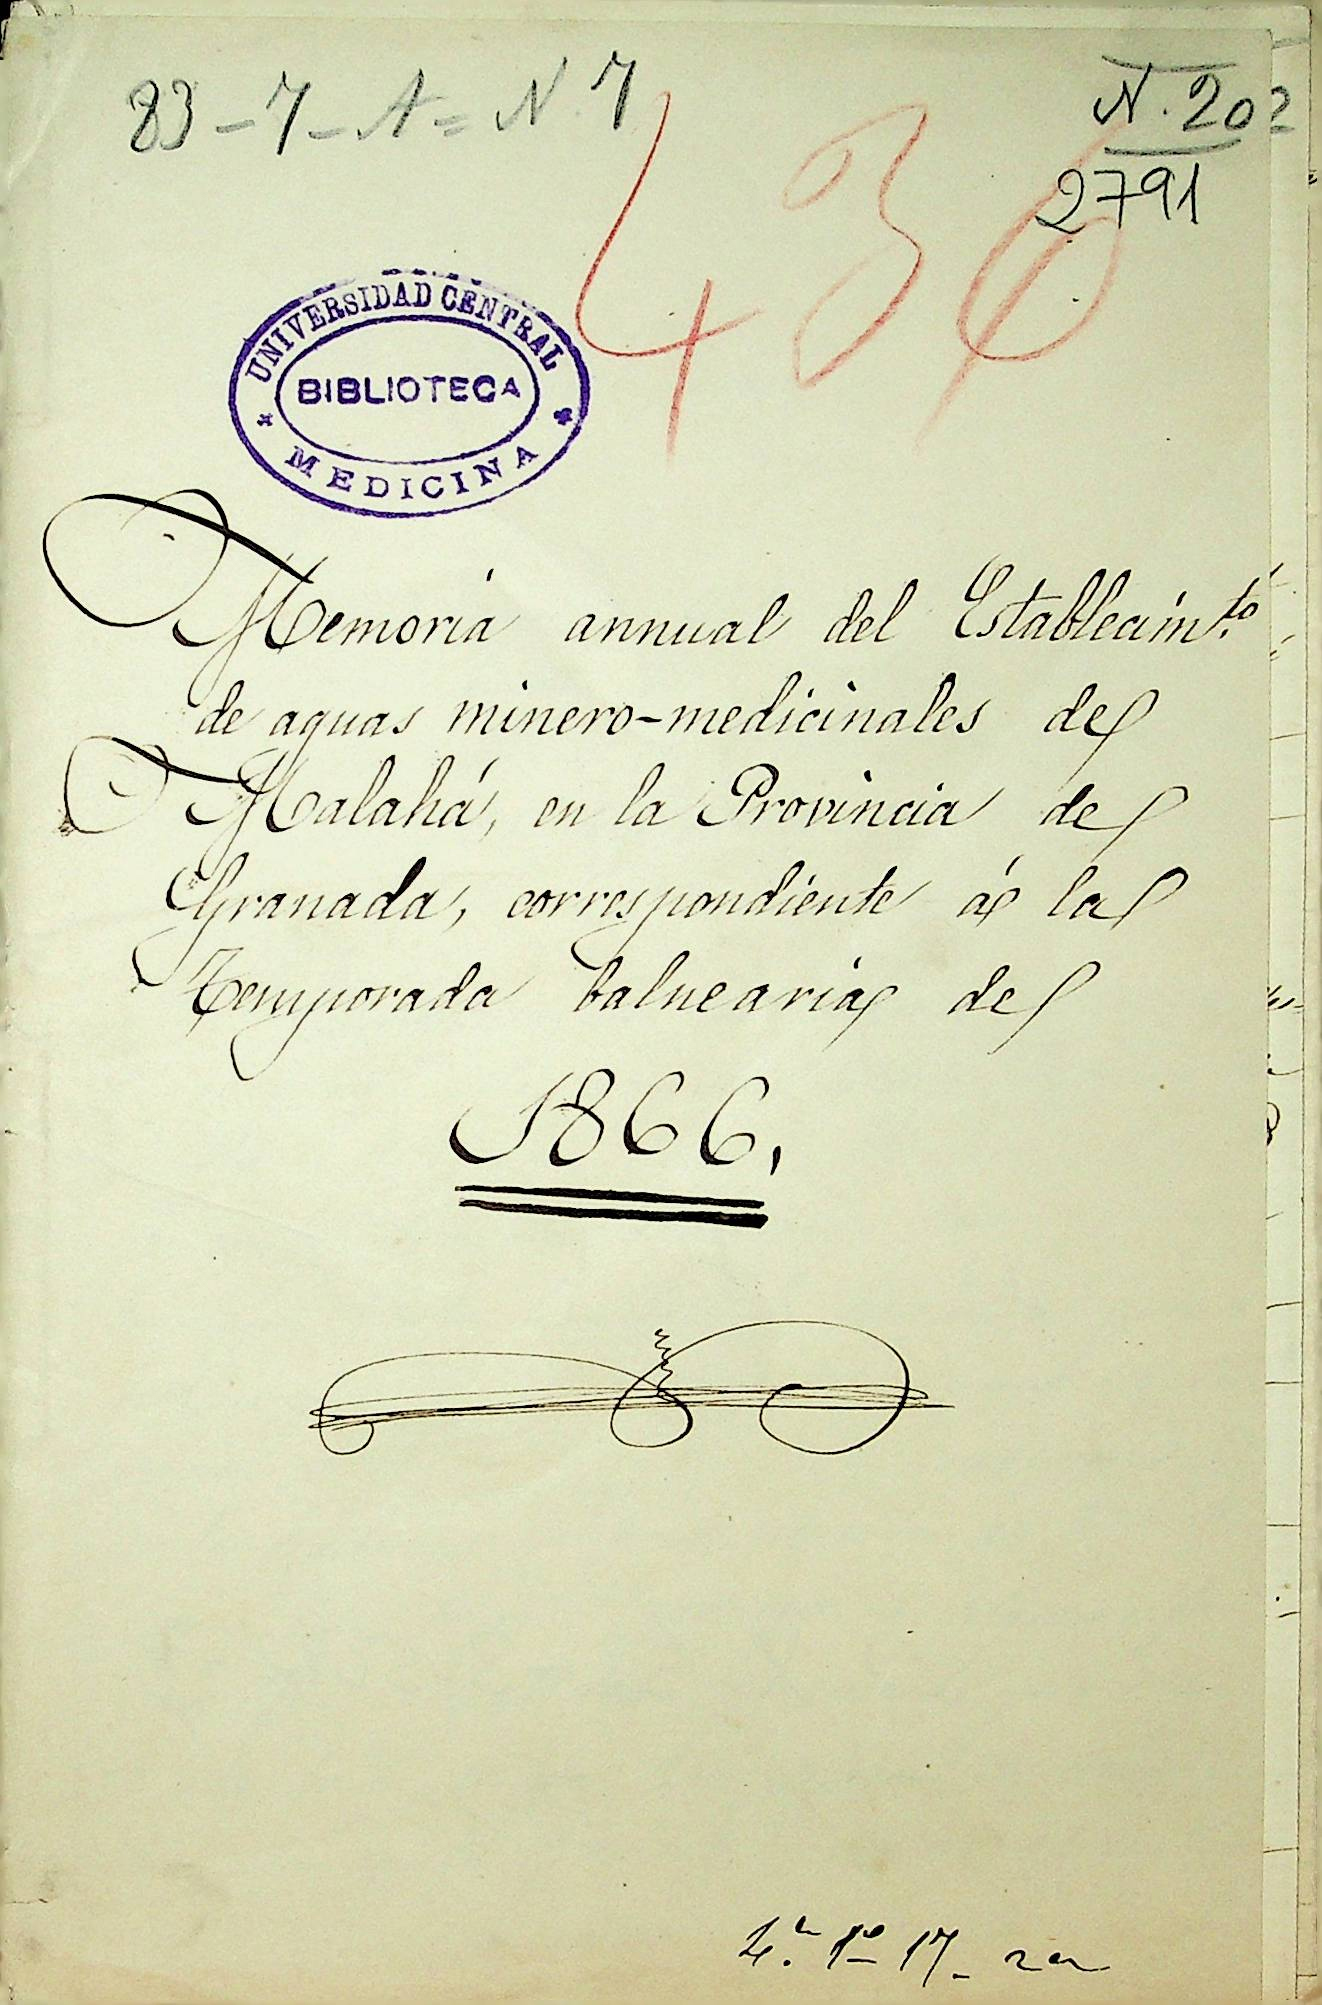 83-7-A=N.7
N.202
2791
436
UNIVERSIDAD CENTRAL
BIBLIOTECA
MEDICINA
Memoria annual del Establecimto
de aguas minero-medicinales de
Malahá, en la Provincia de
Granada, correspondiente á la
temporada balnearia de
1866.
4.a 1o 17-